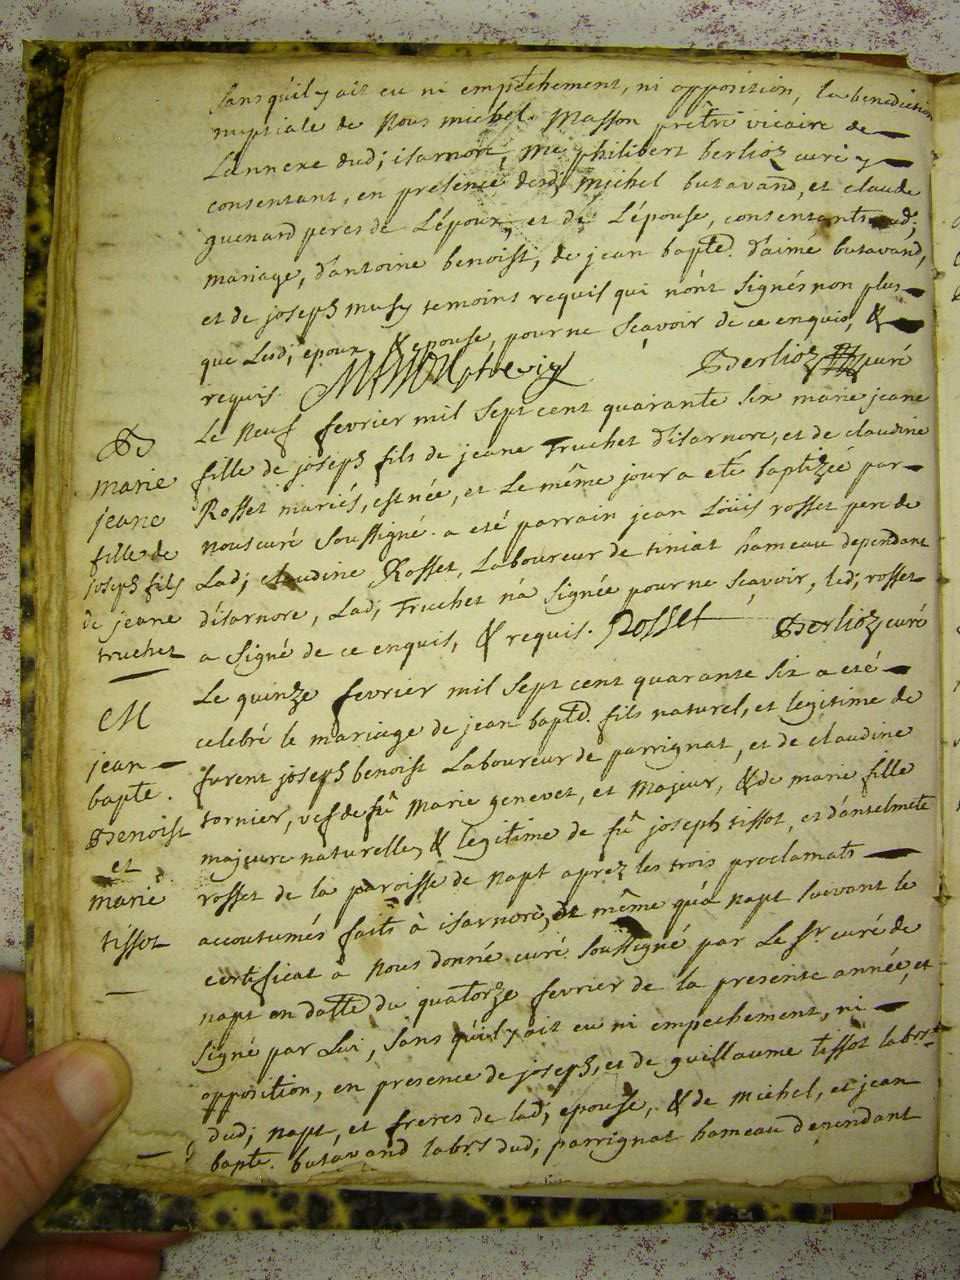 sans qu'il y ait eu ni empêchement, ni opposition, la benediction
nuptiale de Nous michel Masson prêtre vicaire de
L'annexe dud; isarnore, me philibert berlioz curé y
consentant, en présence desd; michel butavand, et claude
guenard peres de L'époux, et de L'épouse, consentants aud;
mariage, d'antoine benoist, de jean bapte. d'aimé butavand,
et de joseph musy temoins requis qui n'ont signés non plus
que Lesd; epoux, & epouse, pour ne sçavoir de ce enquis, &
requis.
Berlioz curé
B
marie
jeane
fille de
joseph fils
de jeane
truchet
Le Neuf fevrier mil sept cent quarante six marie jeane
fille de joseph fils de jeane Truchet d'isarnore, et de claudine
Rosset mariés, est née, et Le même jour a eté baptizée par
nous curé soussigné. a eté parrain jean Loüis rosset pere de
Lad; claudine Rosset, Laboureur de tiniat hameau dependant
d'isarnore, Lad; Truchet n'a signée pour ne sçavoir, led; rosset
a signé de ce enquis, & requis. Rosset Berlioz curé
M
jean
bapte.
Benoist
et
marie
tissot
Le quinze fevrier mil sept cent quarante six a eté
celebré le mariage de jean bapte. fils naturel, et legitime de
furent joseph benoist Laboureur de parrignat, et de claudine
tornier, vef de fû Marie genevet, et Majeur, & de marie fille
majeure naturelle, & legitime de fû joseph tissot, et d'anselmete
rosset de la paroisse de napt aprez les trois proclamats
accoutumés faits à isarnore, de même qu'à napt suivant le
certificat à Nous donné curé soussigné par Le sr. curé de
napt en datte du quatorze fevrier de la presente année, et
signé par Lui, sans qu'il y ait eu ni empechement, ni
opposition, en presence de joseph, et de guillaume tissot labrs.
dud; napt, et freres de lad; epouse, & de michel, et jean
bapte. butavand labrs dud; parrignat hameau dependant